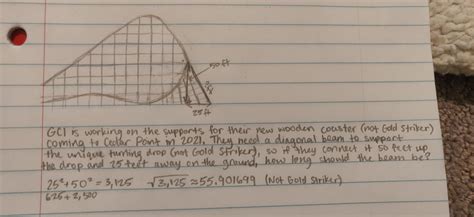 50 ft
25 ft
GCI is working on the supports for their new wooden coaster (not Gold Striker)
coming to Cedar Point in 2021. They need a diagonal beam to support
the unique turning drop (not Gold Striker), so if they connect it 50 feet up
the drop and 25 feet away on the ground, how long should the beam be?
25² + 50² = 3,125 √3,125 ≈ 55.901699 (Not Gold Striker)
625 + 2,500